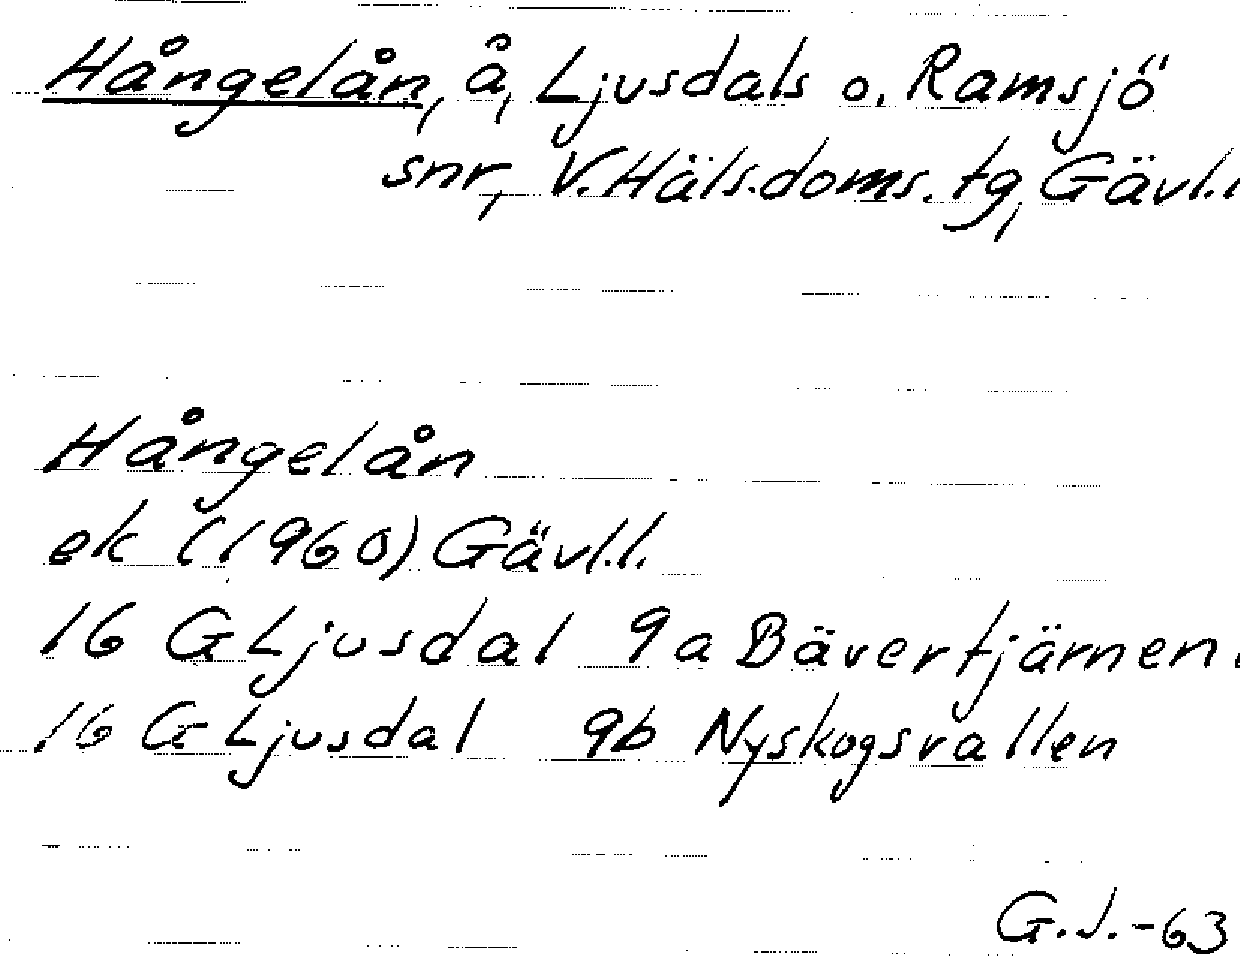 Hångelån, å, Ljusdals o. Ramsjö
snr, V. Häls. doms. tg, Gävl.l
Hångelån
ek (1960) Gävl.l.
16 G Ljusdal 9a Bävertjärnen.
16 G Ljusdal 9b Nyskogsvallen
G.J.-63